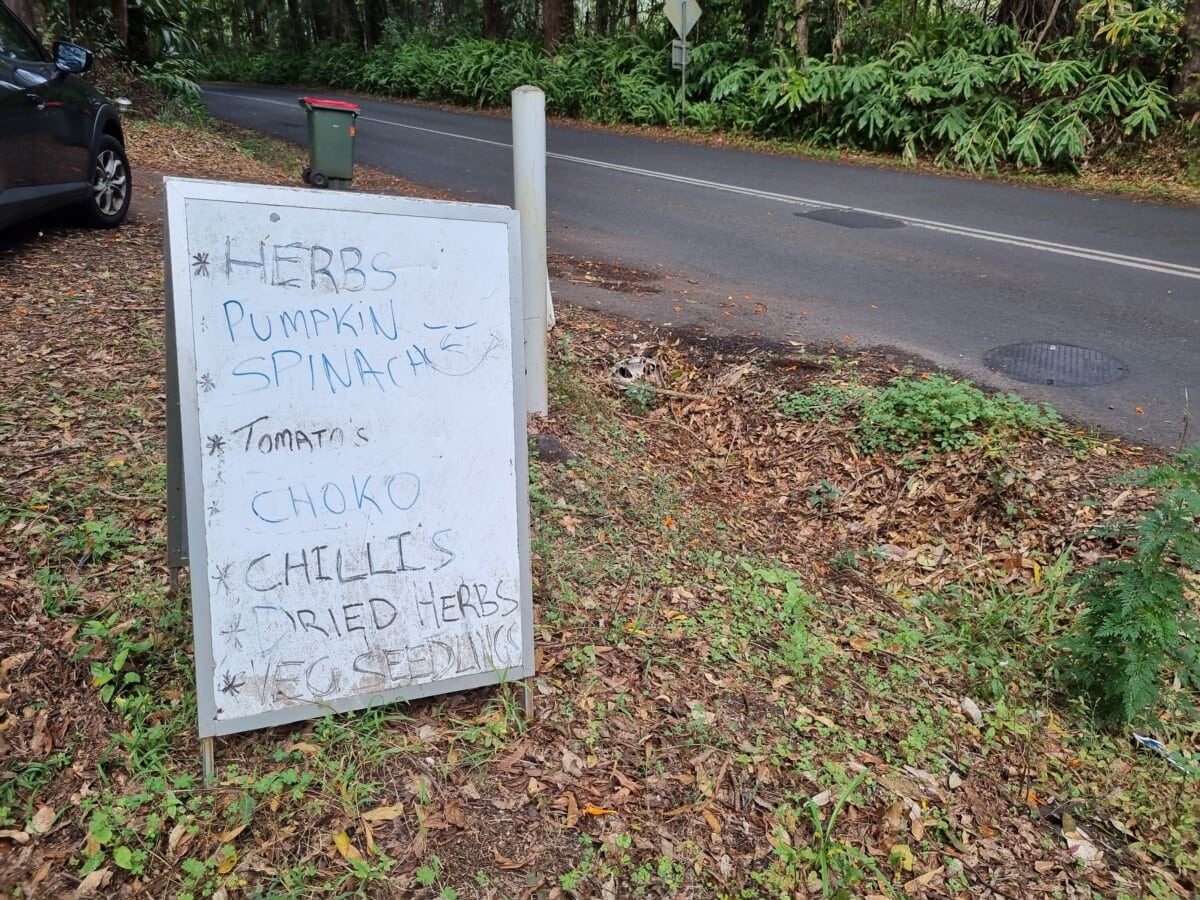 * HERBS
PUMPKIN
* SPINACH
* TOMATO'S
* CHOKO
* CHILLIS
* DRIED HERBS
* VEG SEEDLINGS